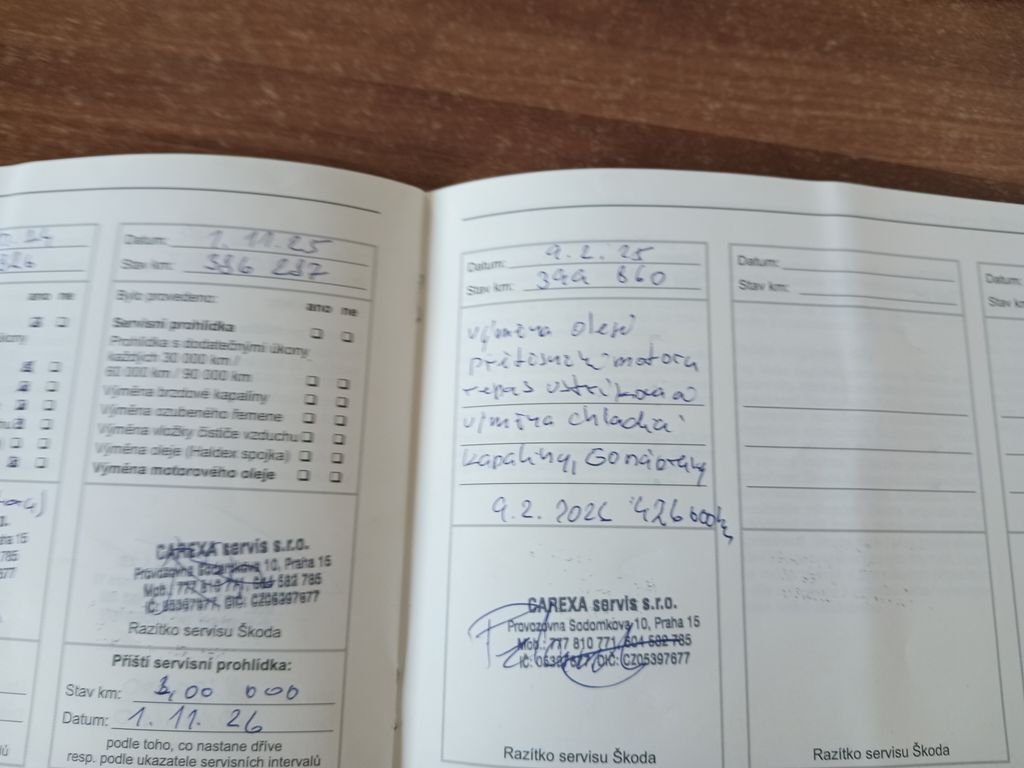 Datum: 1.11.25
Stav km: 396 237
Bylo provedeno:
ano ne
Servisní prohlídka
Prohlídka s dodatečnými úkony
každých 30 000 km /
60 000 km / 90 000 km
Výměna brzdové kapaliny
Výměna ozubeného řemene
Výměna vložky čističe vzduchu
Výměna oleje (Haldex spojka)
Výměna motorového oleje
CAREXA servis s.r.o.
Provozovna Sodomkova 10, Praha 15
Mob.: 777 810 771, 604 582 785
IČ: 05397677, DIČ: CZ05397677
Razítko servisu Škoda
Příští servisní prohlídka:
Stav km: 400 000
Datum: 1.11.26
podle toho, co nastane dříve
resp. podle ukazatele servisních intervalů
ano ne
Datum: 9.2.25
Stav km: 399 860
výměna oleje
motoru
repas
výměna chladicí
kapaliny,
9.2.2026 426 600 km
CAREXA servis s.r.o.
Provozovna Sodomkova 10, Praha 15
Mob.: 777 810 771, 604 582 785
IČ: 05397677, DIČ: CZ05397677
Razítko servisu Škoda
Datum:
Stav km:
Razítko servisu Škoda
Datum: